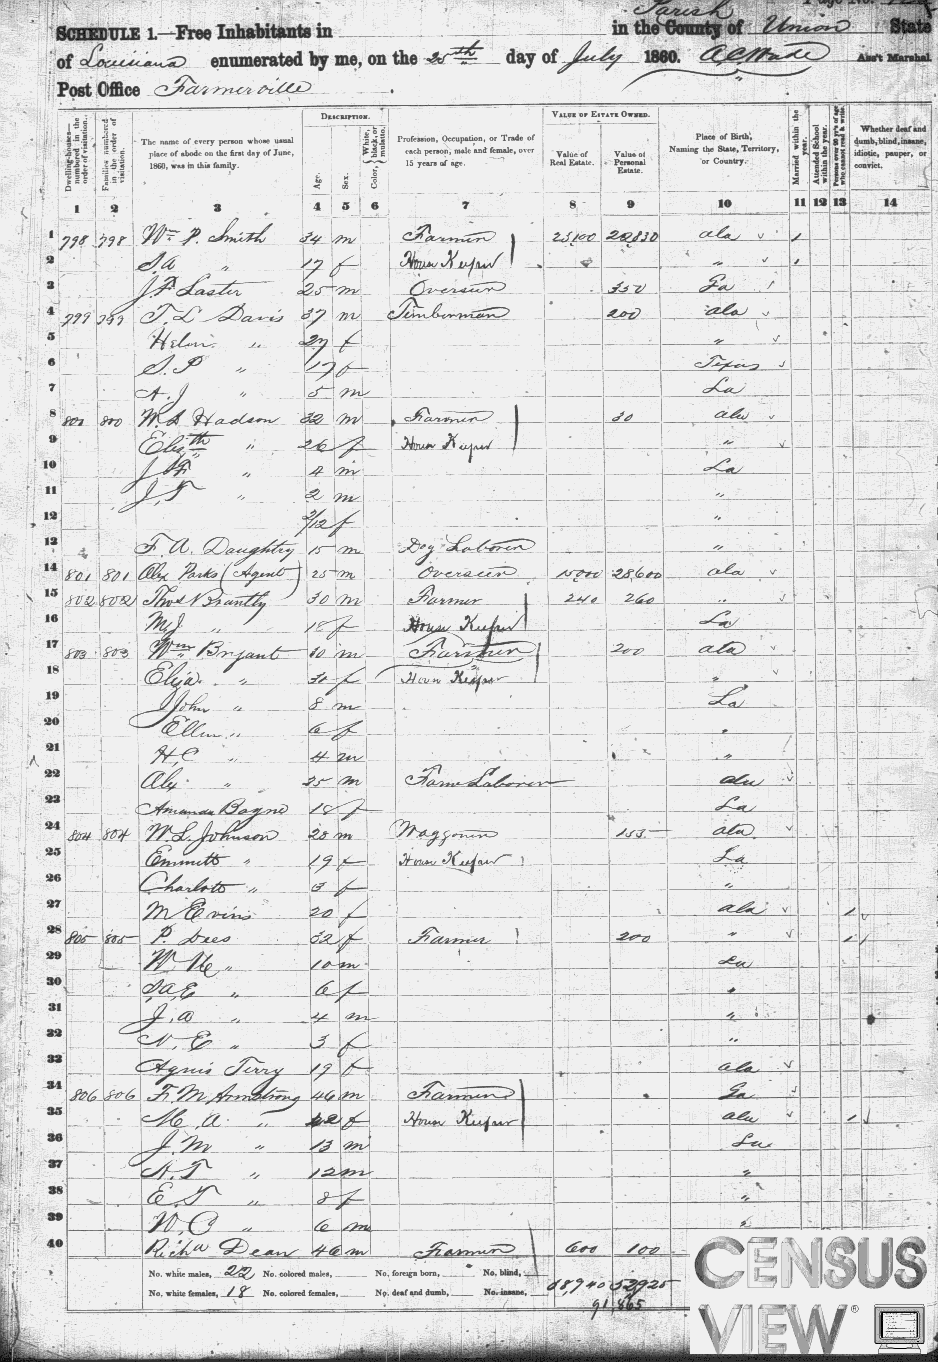 Parish
SCHEDULE 1.—Free Inhabitants in in the County of Union State
of Louisiana enumerated by me, on the 25th day of July 1860. Ass't Marshal.
Post Office Farmerville
Dwelling-houses—numbered in the order of visitation.
Families numbered in the order of visitation.
The name of every person whose usual place of abode on the first day of June, 1860, was in this family.
DESCRIPTION.
Age.
Sex.
Color, White, black, or mulatto.
Profession, Occupation, or Trade of each person, male and female, over 15 years of age.
VALUE OF ESTATE OWNED.
Value of Real Estate.
Value of Personal Estate.
Place of Birth, Naming the State, Territory, or Country.
Married within the year.
Attended School within the year.
Persons over 20 y'rs of age who cannot read & write.
Whether deaf and dumb, blind, insane, idiotic, pauper, or convict.
1 2 3 4 5 6 7 8 9 10 11 12 13 14
1 798 798 Wm P. Smith 34 m Farmer Ala 1
2 S.A " 17 f House Keeper " 1
3 J.F. Laster 25 m Overseer 350 Ga
4 799 799 T L Davis 37 m Timberman 200 Ala
5 Helen " 27 f "
6 S.P " f Texas
7 A.J " 5 m La
8 800 800 W.S Hadson 32 m Farmer 30 Ala
9 Elizth " 26 f House Keeper "
10 J F " 4 m La
11 J,T " 2 m "
12 2/12 f "
13 F. A. Daughtry 15 m Day Laborer "
14 801 801 Alex Parks (Agent) 25 m Overseer 15000 28,600 Ala
15 802 802 Thos N Brantly 30 m Farmer 240 260 "
16 M,J " 18 f House Keeper La
17 803 803 Wm Bryant 30 m Farmer 200 Ala
18 Eliza " 30 f House Keeper "
19 John " 8 m La
20 Ellen " 6 f "
21 H.C " 4 m "
22 Alex " 25 m Farm Laborer Ala
23 Amanda Bayne 18 f La
24 804 804 W.L. Johnson 28 m Waggoner 155 Ala
25 Emmett " 19 f House Keeper La
26 Charlott " 3 f "
27 M Evins 20 f Ala 1
28 805 805 P. Dees 32 f Farmer 200 " 1
29 W. " 10 m La
30 S,A,E " 6 f "
31 J.A " 4 m "
32 N. E " 3 f "
33 Agnis Terry 19 f Ala
34 806 806 F. M Armstrong 46 m Farmer Ga
35 M. A. " 42 f House Keeper Ala 1
36 J. M " 13 m La
37 A.T " 12 m "
38 E T " 8 f "
39 W, C " 6 m "
40 Richd Dean 46 m Farmer 600 100
No. white males, 22 No. colored males, No. foreign born, No. blind,
No. white females, 18 No. colored females, No. deaf and dumb, No. insane,
91,865
CENSUS
VIEW®